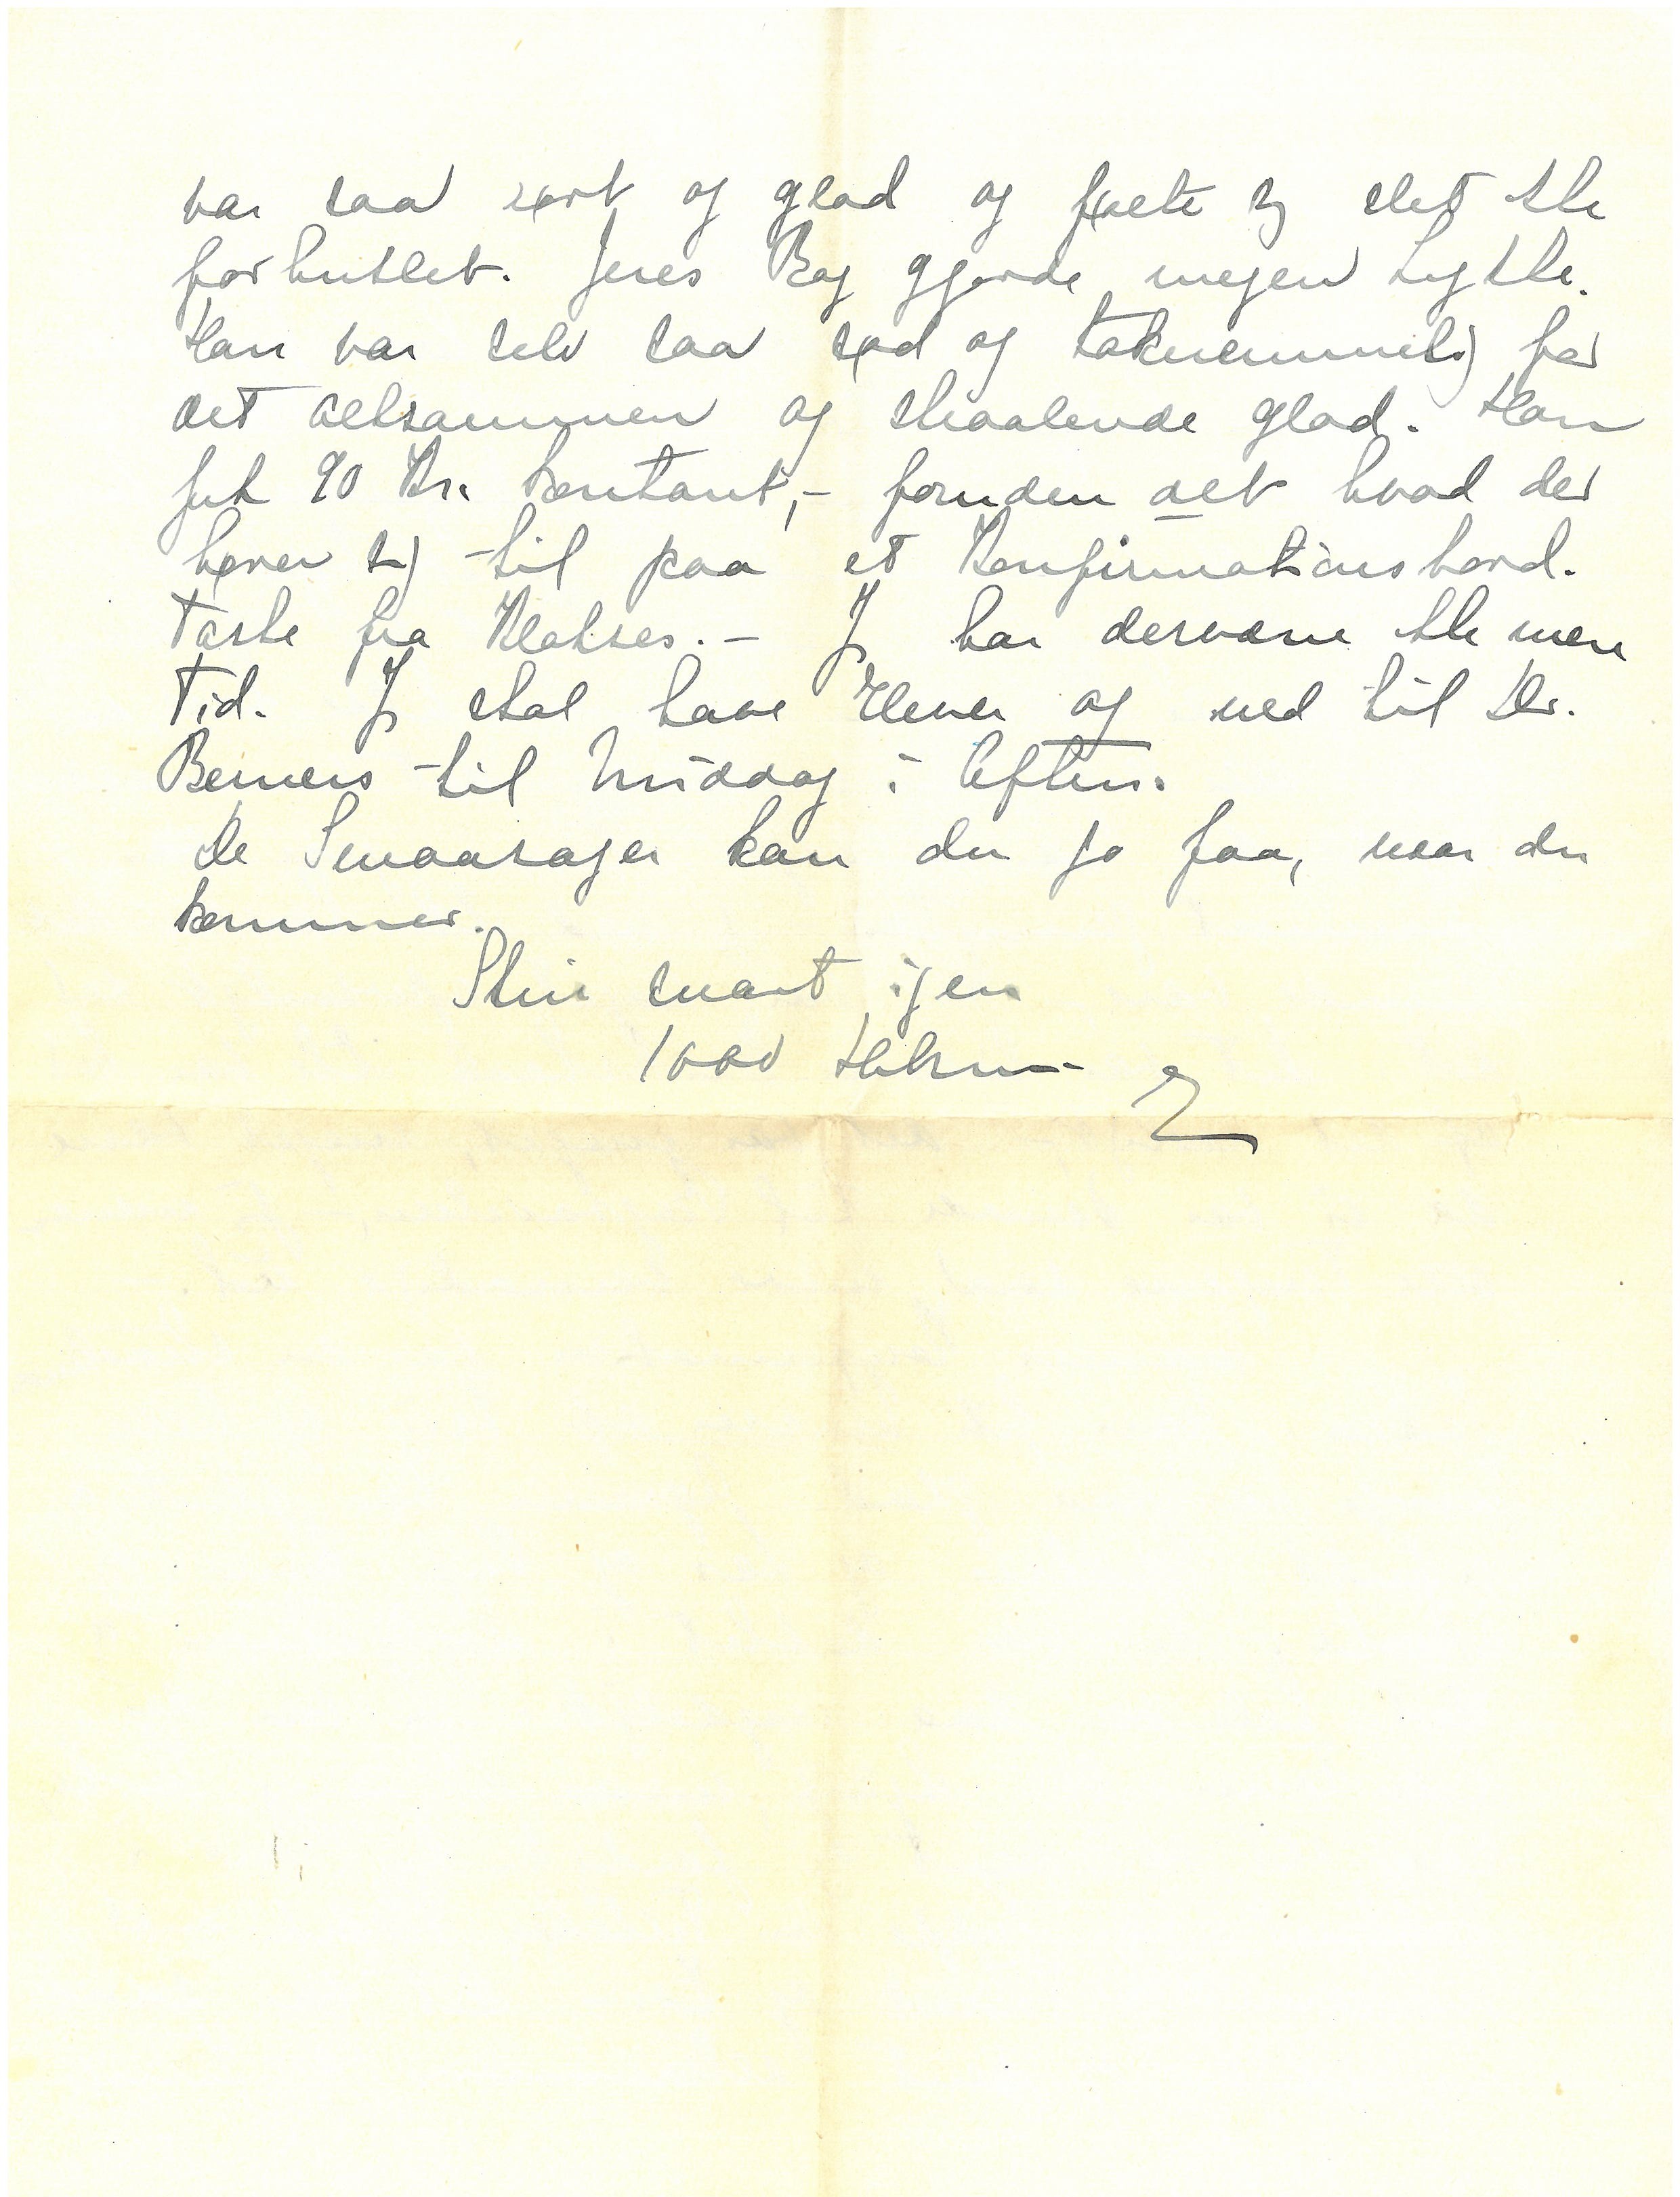 var saa sødt og glad og følte sig slet ikke
forkuttet. Jeres Bog gjorde megen Lykke.
Han var selv saa sød og taknemmelig for
det altsammen og straalende glad. Han
fik 90 Kr. kontant, – foruden alt hvad der
hører sig til paa et Konfirmationsbord.
Taske fra Klakses. – Jeg har desværre ikke mere
Tid. Jeg skal have Elever og ned til Dr.
Berners til Middag i Aften.
De Smaasager kan du jo faa, naar du
kommer.
Skriv snart igen
1000 Hilsner
E